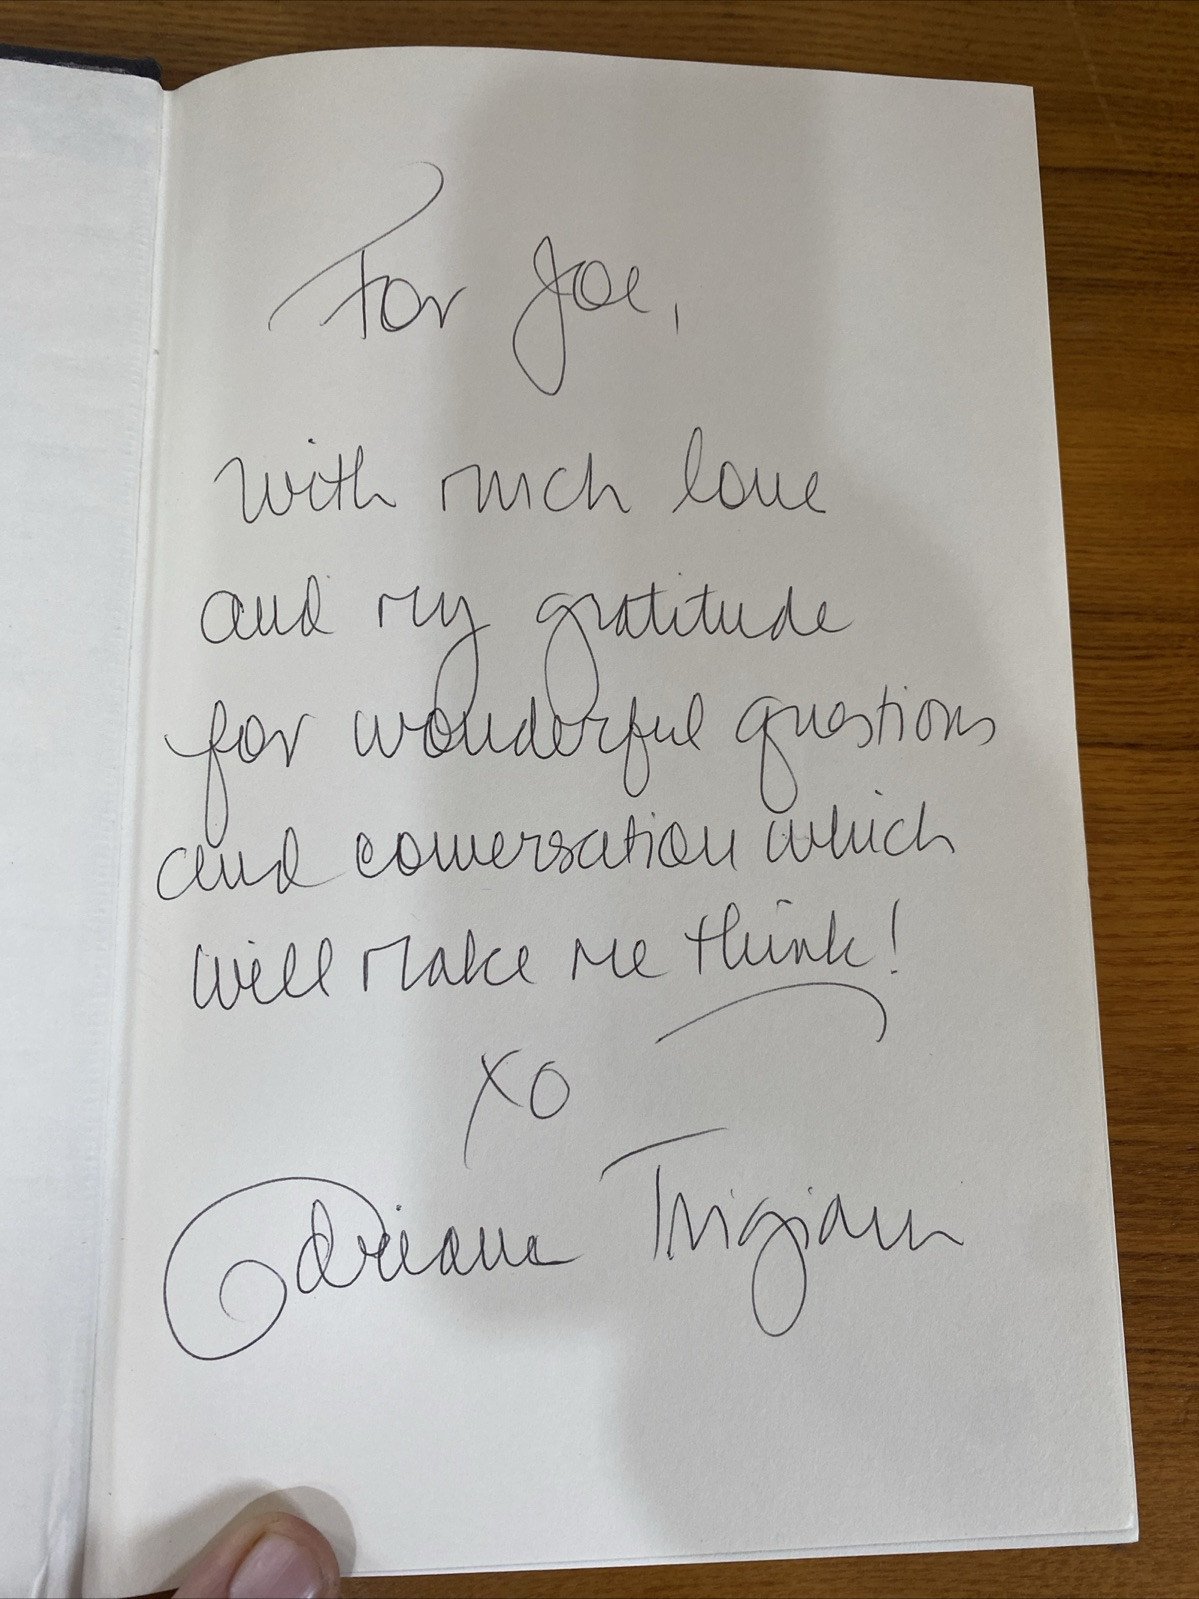 For Joe,
With much love
and my gratitude
for wonderful questions
and conversation which
will make me think!
XO
Adriana Trigiani